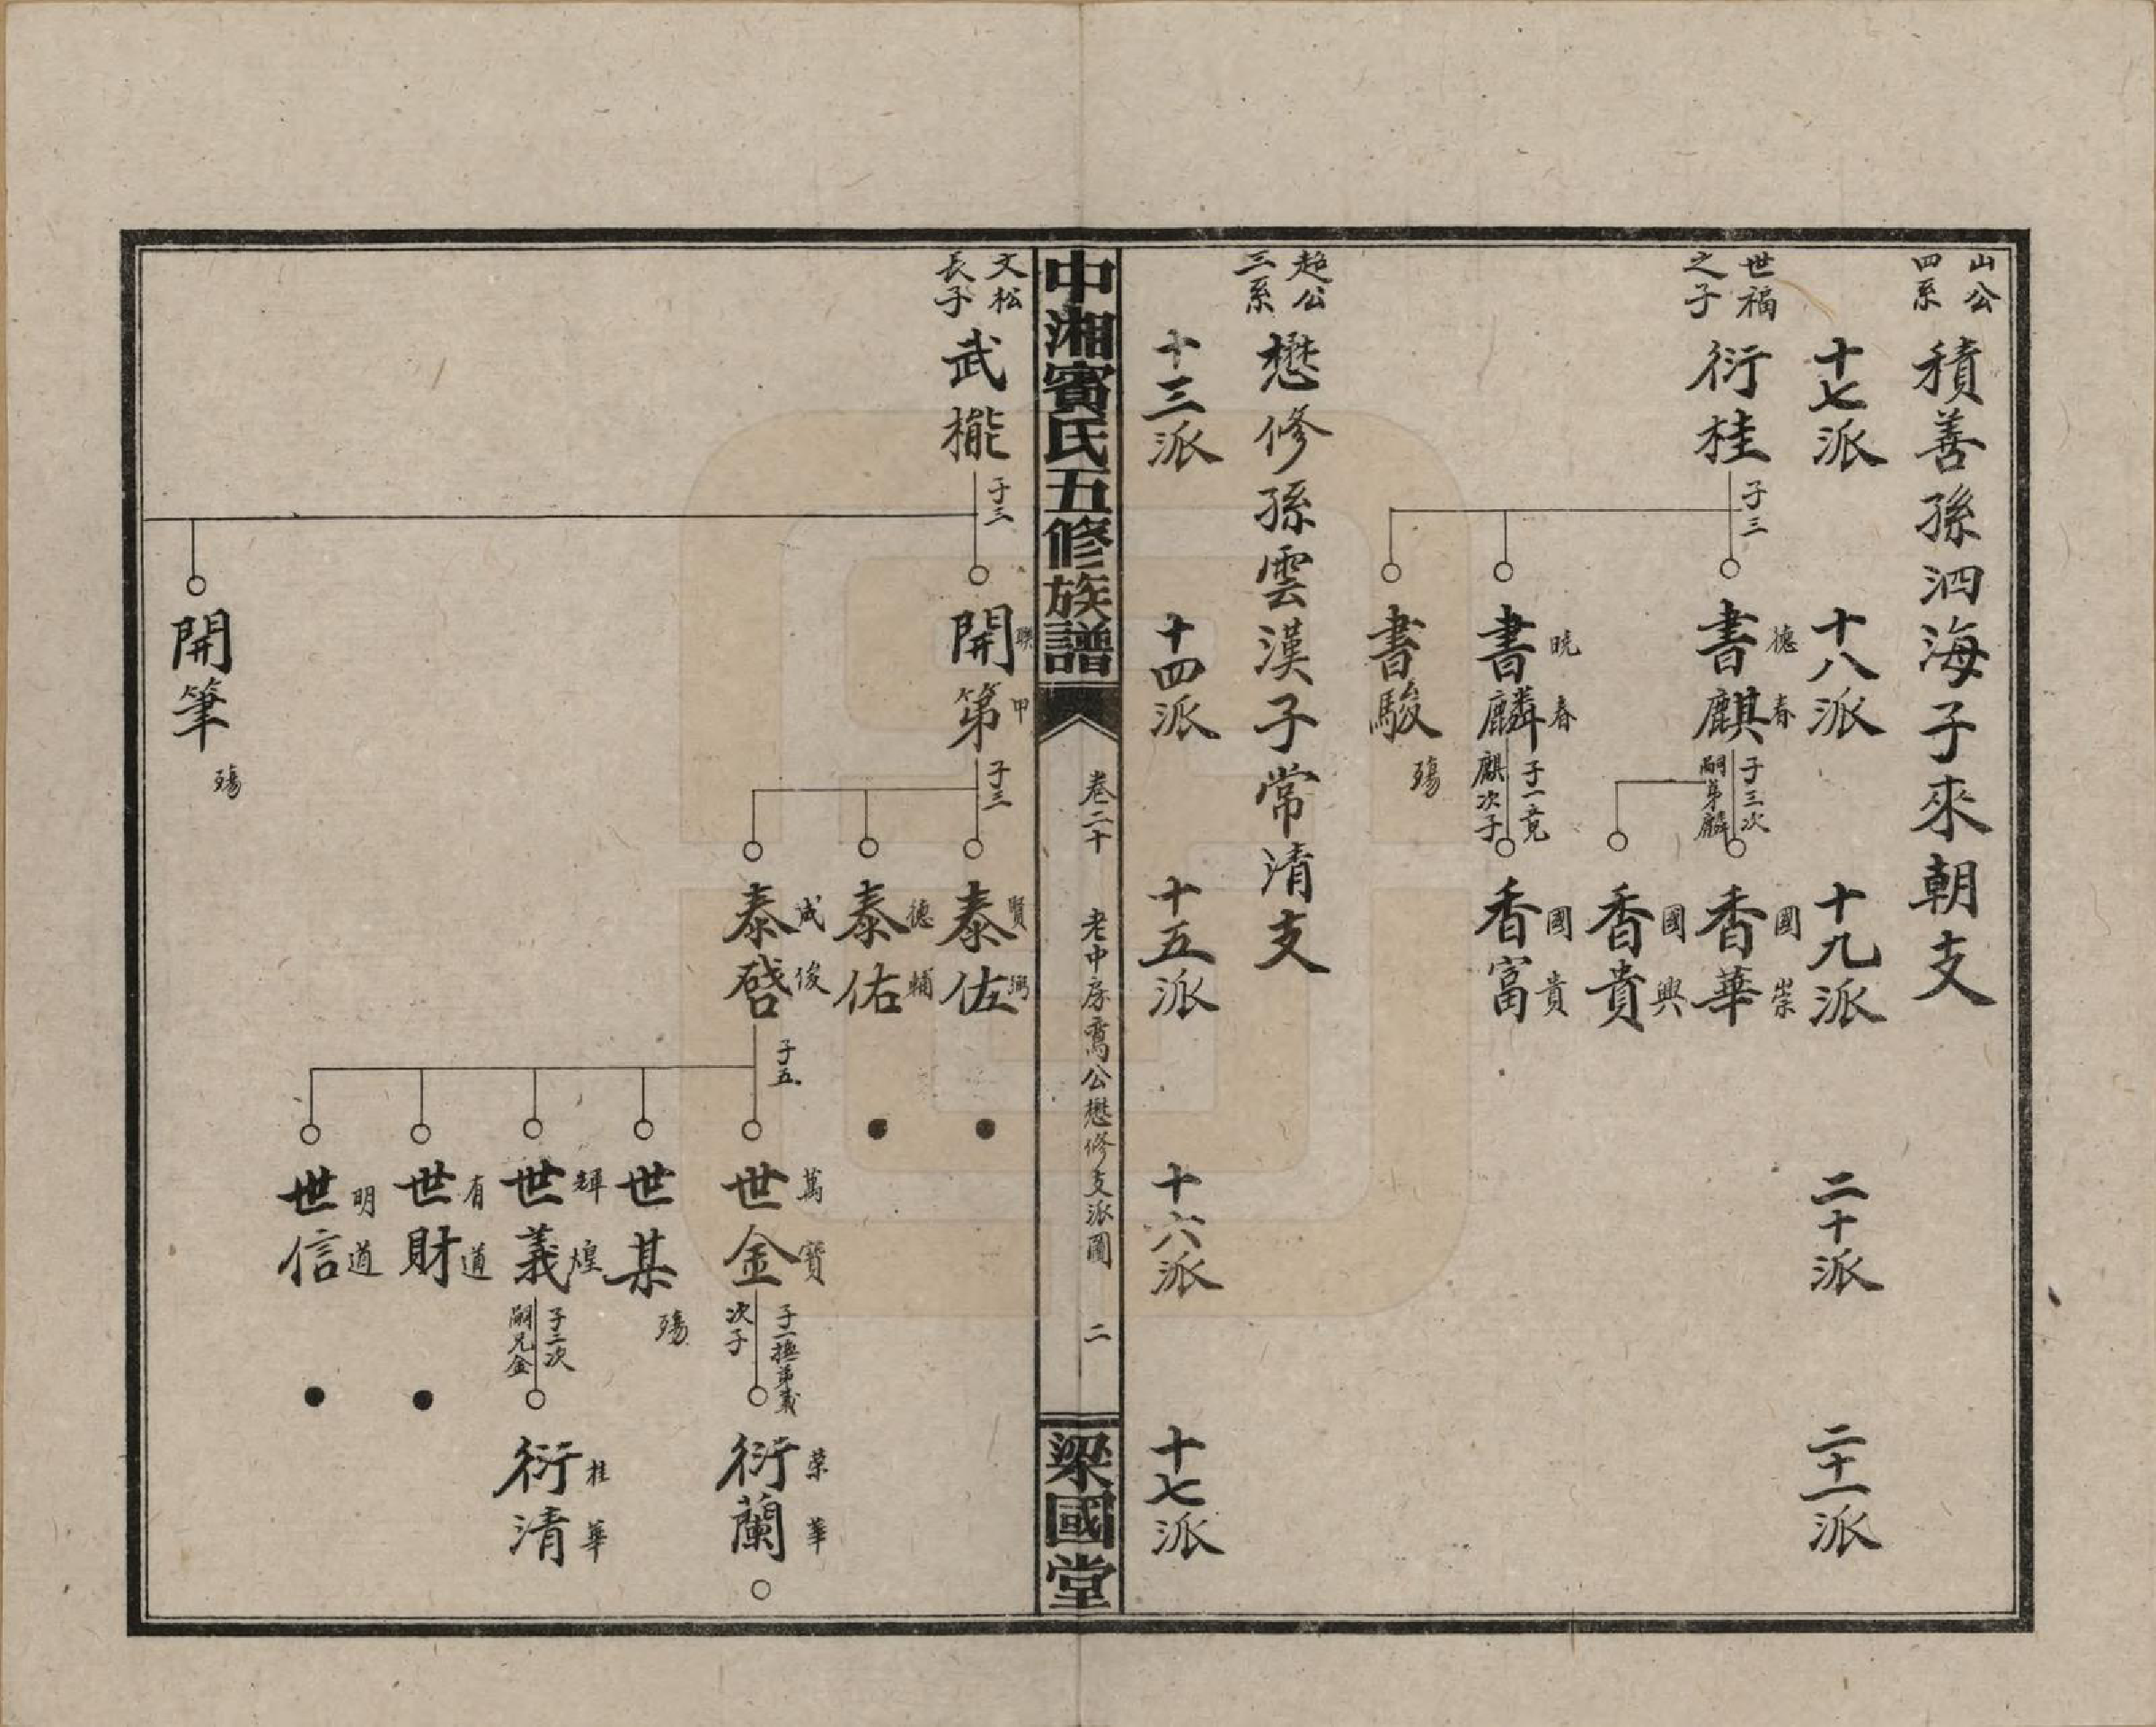 山公
四系
積善孫泗海子來朝支
十七派
十八派
十九派
二十派
二十一派
世福
之子
衍桂
子三
德春
書麒
子三次
嗣弟麟
國崇
香華
國興
香貴
曉春
書麟
子一竟
麒次子
國貴
香富
書駿
殤
超公
三系
懋修孫雲漢子常清支
十三派
十四派
十五派
十六派
十七派
中湘賓氏五修族譜
卷二十
老中房喬公懋修支派圖
二
梁國堂
文松
長子
武櫳
子三
聯甲
開第
子三
賢弼
泰佐
德輔
泰佑
成俊
泰啓
子五
萬寶
世金
子一撫弟義
次子
榮華
衍蘭
世某
殤
輝煌
世義
子二次
嗣兄金
桂華
衍清
有道
世財
明道
世信
開筆
殤